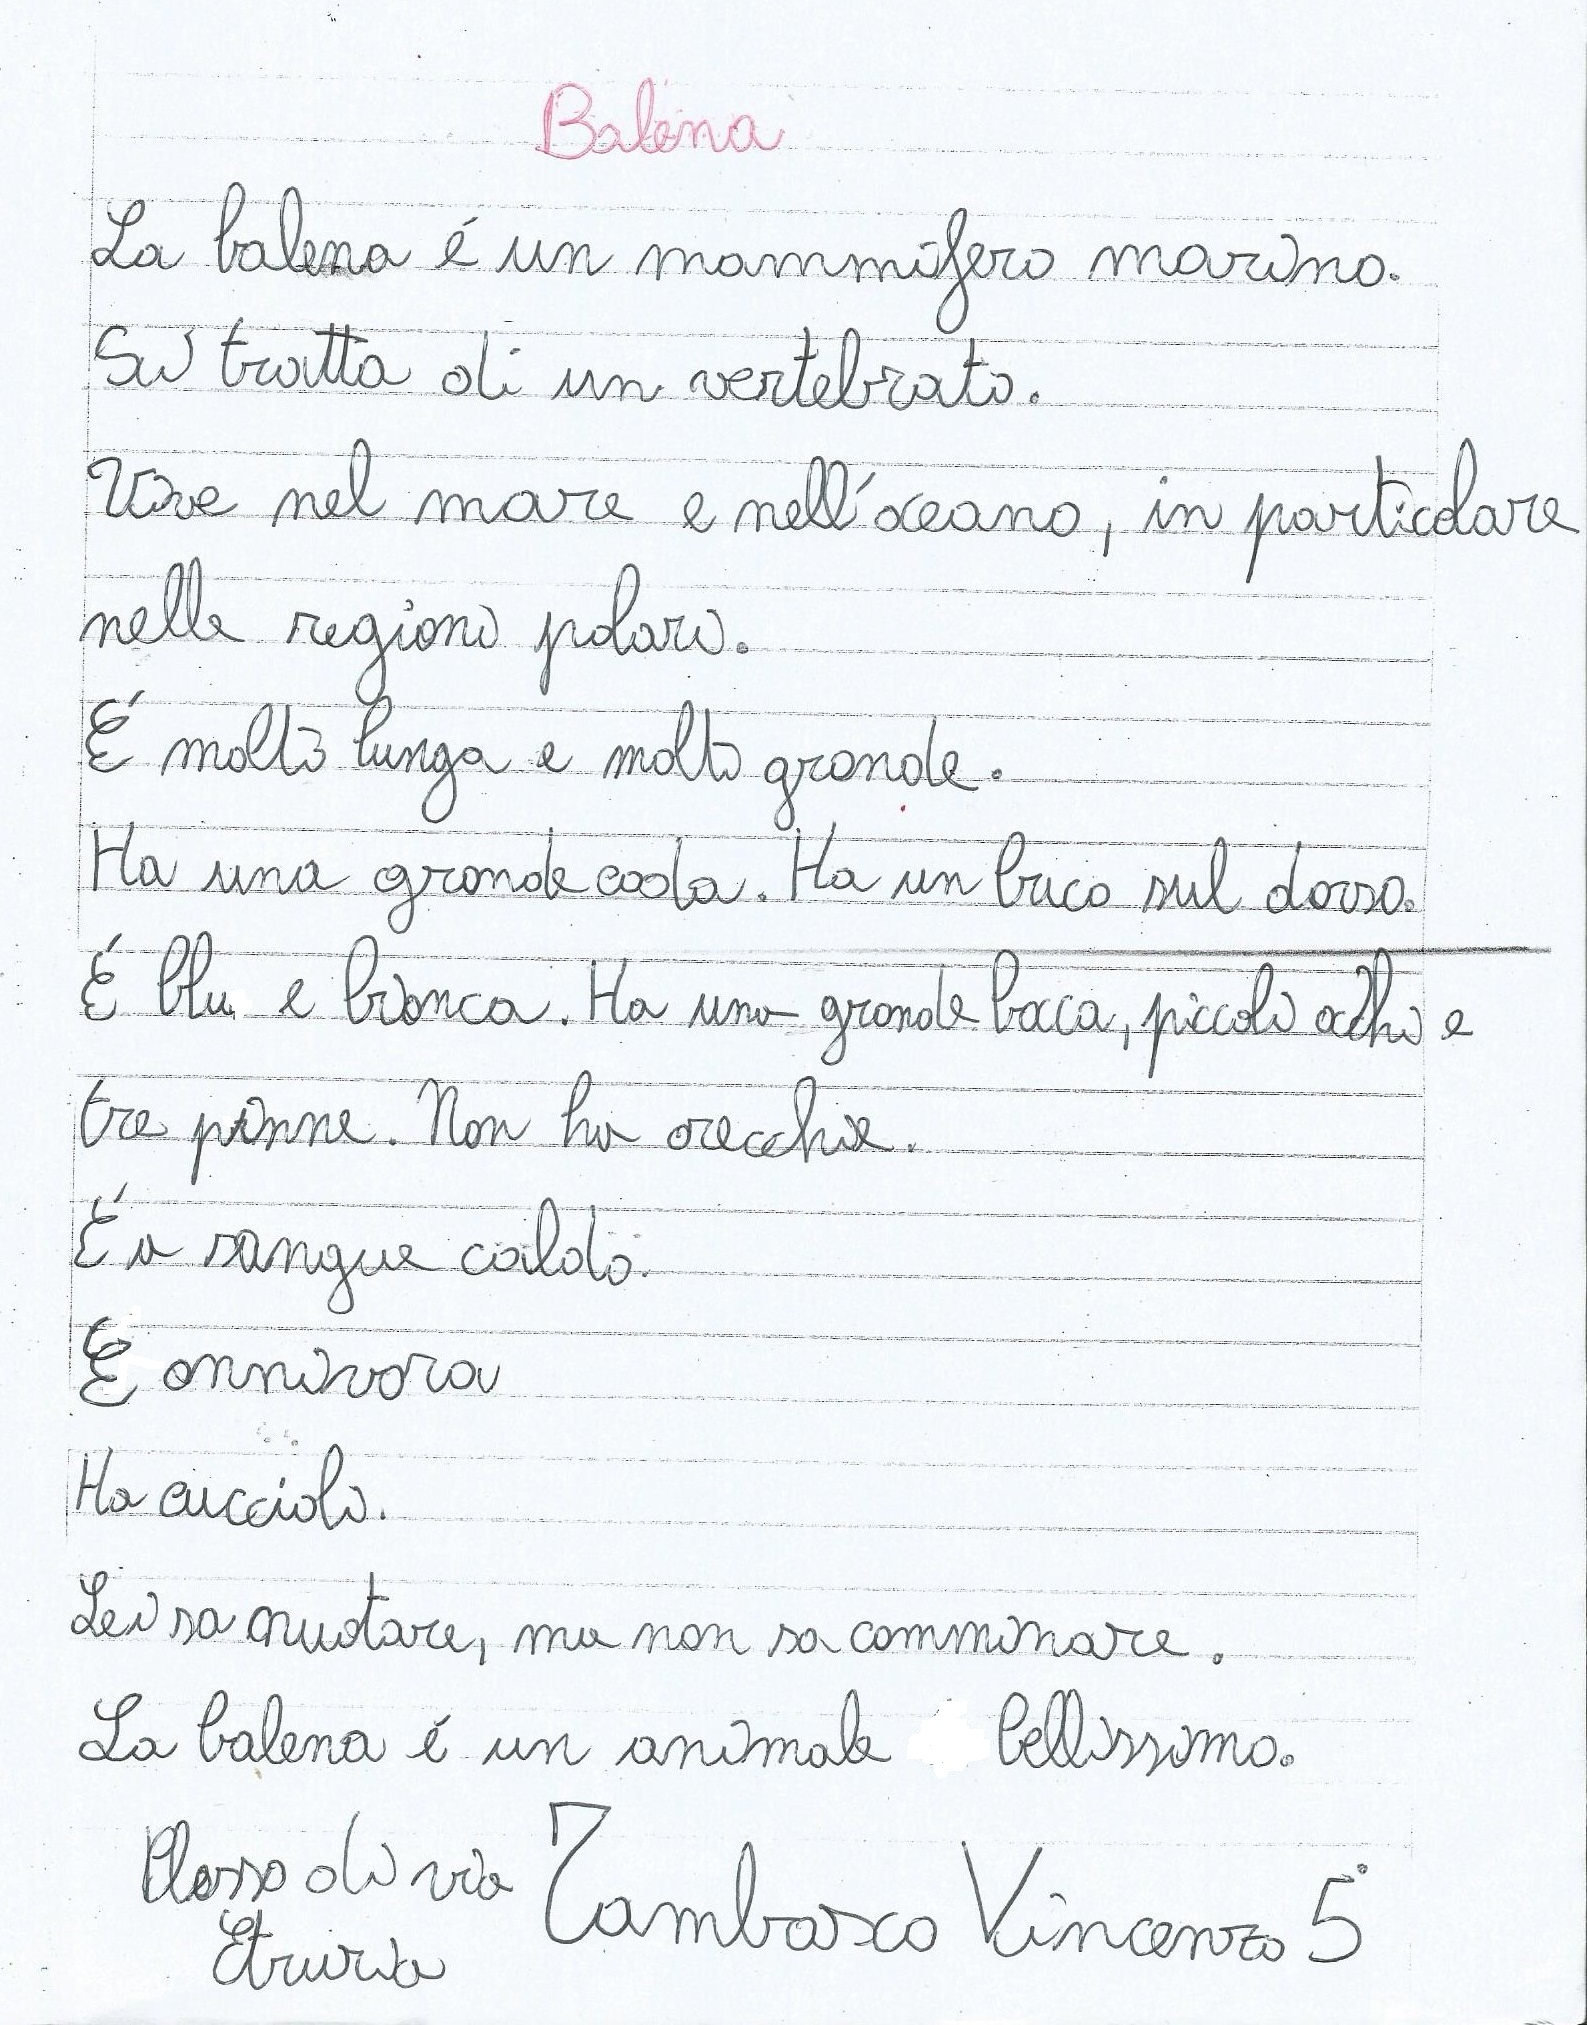 Balena
La balena é un mammifero marino.
Si tratta di un vertebrato.
Vive nel mare e nell'oceano, in particolare
nelle regioni polari.
É molto lunga e molto grande.
Ha una grande coda. Ha un buco sul dorso.
É blu e bianca. Ha una grande bocca, piccoli occhi e
tre pinne. Non ha orecchie.
É a sangue caldo.
É onnivora
Ha cuccioli.
Lei sa nuotare, ma non sa camminare.
La balena é un animale bellissimo.
Plesso di via Tambasco Vincenzo 5°
Etruria